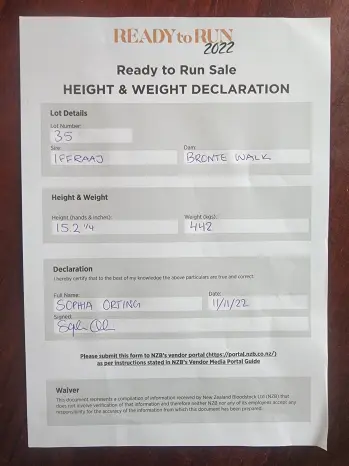 READY to RUN
2022
Ready to Run Sale
HEIGHT & WEIGHT DECLARATION
Lot Details
Lot Number:
35
Sire: Dam:
IFFRAAJ BRONTE WALK
Height & Weight
Height (hands & inches): Weight (kgs):
15.2 1/4 442
Declaration
I hereby certify that to the best of my knowledge the above particulars are true and correct.
Full Name: Date:
SOPHIA ORTING 11/11/22
Signed:
Please submit this form to NZB's vendor portal (https://portal.nzb.co.nz/)
as per instructions stated in NZB's Vendor Media Portal Guide
Waiver
This document represents a compilation of information received by New Zealand Bloodstock Ltd (NZB) that
does not involve verification of that information and therefore neither NZB nor any of its employees accept any
responsibility for the accuracy of the information from which this document has been prepared.